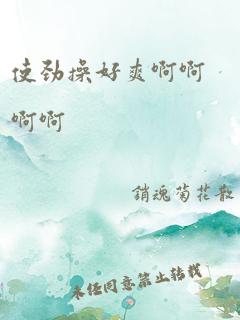 使劲操好爽啊啊
啊啊
銷魂菊花散
未经同意禁止转载